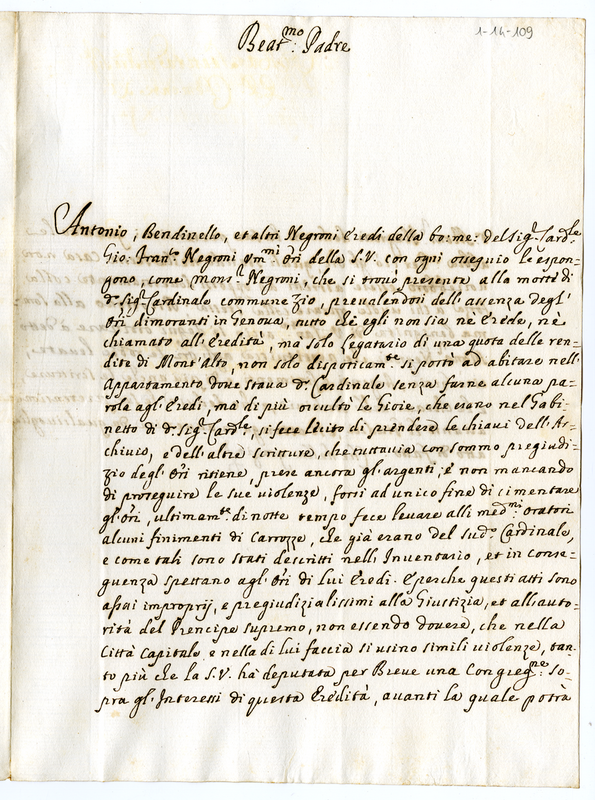 1-14-109
Beat.mo Padre
Antonio, Bendinello, et altri Negroni Eredi della bo: me: del Sig.r Card.le
Gio: Fran.co Negroni Um.mi Ori della S.V. con ogni ossequio le espon-
gono, come Mons.r Negroni, che si trovò presente alla morte di
d.o Sig.r Cardinale commune Zio, prevalendosi dell'assenza degl'
Ori dimoranti in Genova, tutto che egli non sia nè Erede, nè
chiamato all'Eredità, mà solo Legatario di una quota delle ren-
dite di Mont'Alto, non solo disporicam.te si portò ad abitare nell'
Appartamento dove stava d.o Cardinale senza farne alcuna pa-
rola agl'Eredi, mà di più occultò le Gioie, che erano nel Gabi-
netto di d.o Sig.r Card.le, si fece lecito di prendere le chiavi dell'Ar-
chivio, e dell'altre scritture, che tuttavia con sommo pregiudi-
zio degl'Ori ritiene, prese ancora gl'argenti, è non mancando
di proseguire le sue violenze, forsi ad unico fine di cimentare
gl'Ori, ultimam.te di notte tempo fece levare alli med.mi Oratori
alcuni finimenti di Carrozze, che già erano del sud.o Cardinale,
e come tali sono stati descritti nell'Inventario, et in conse-
guenza spettano agl'Ori di Lui Eredi. E perche questi atti sono
assai improprij, e pregiudizialissimi alla Giustizia, et all'auto-
rità del Prencipe supremo, non essendo dovere, che nella
Città Capitale e nella di lui faccia si usino simili violenze, tan-
to più che la S.V. hà deputata per Breve una Congreg.ne so-
pra gl'Interessi di questa Eredità, avanti la quale potrà